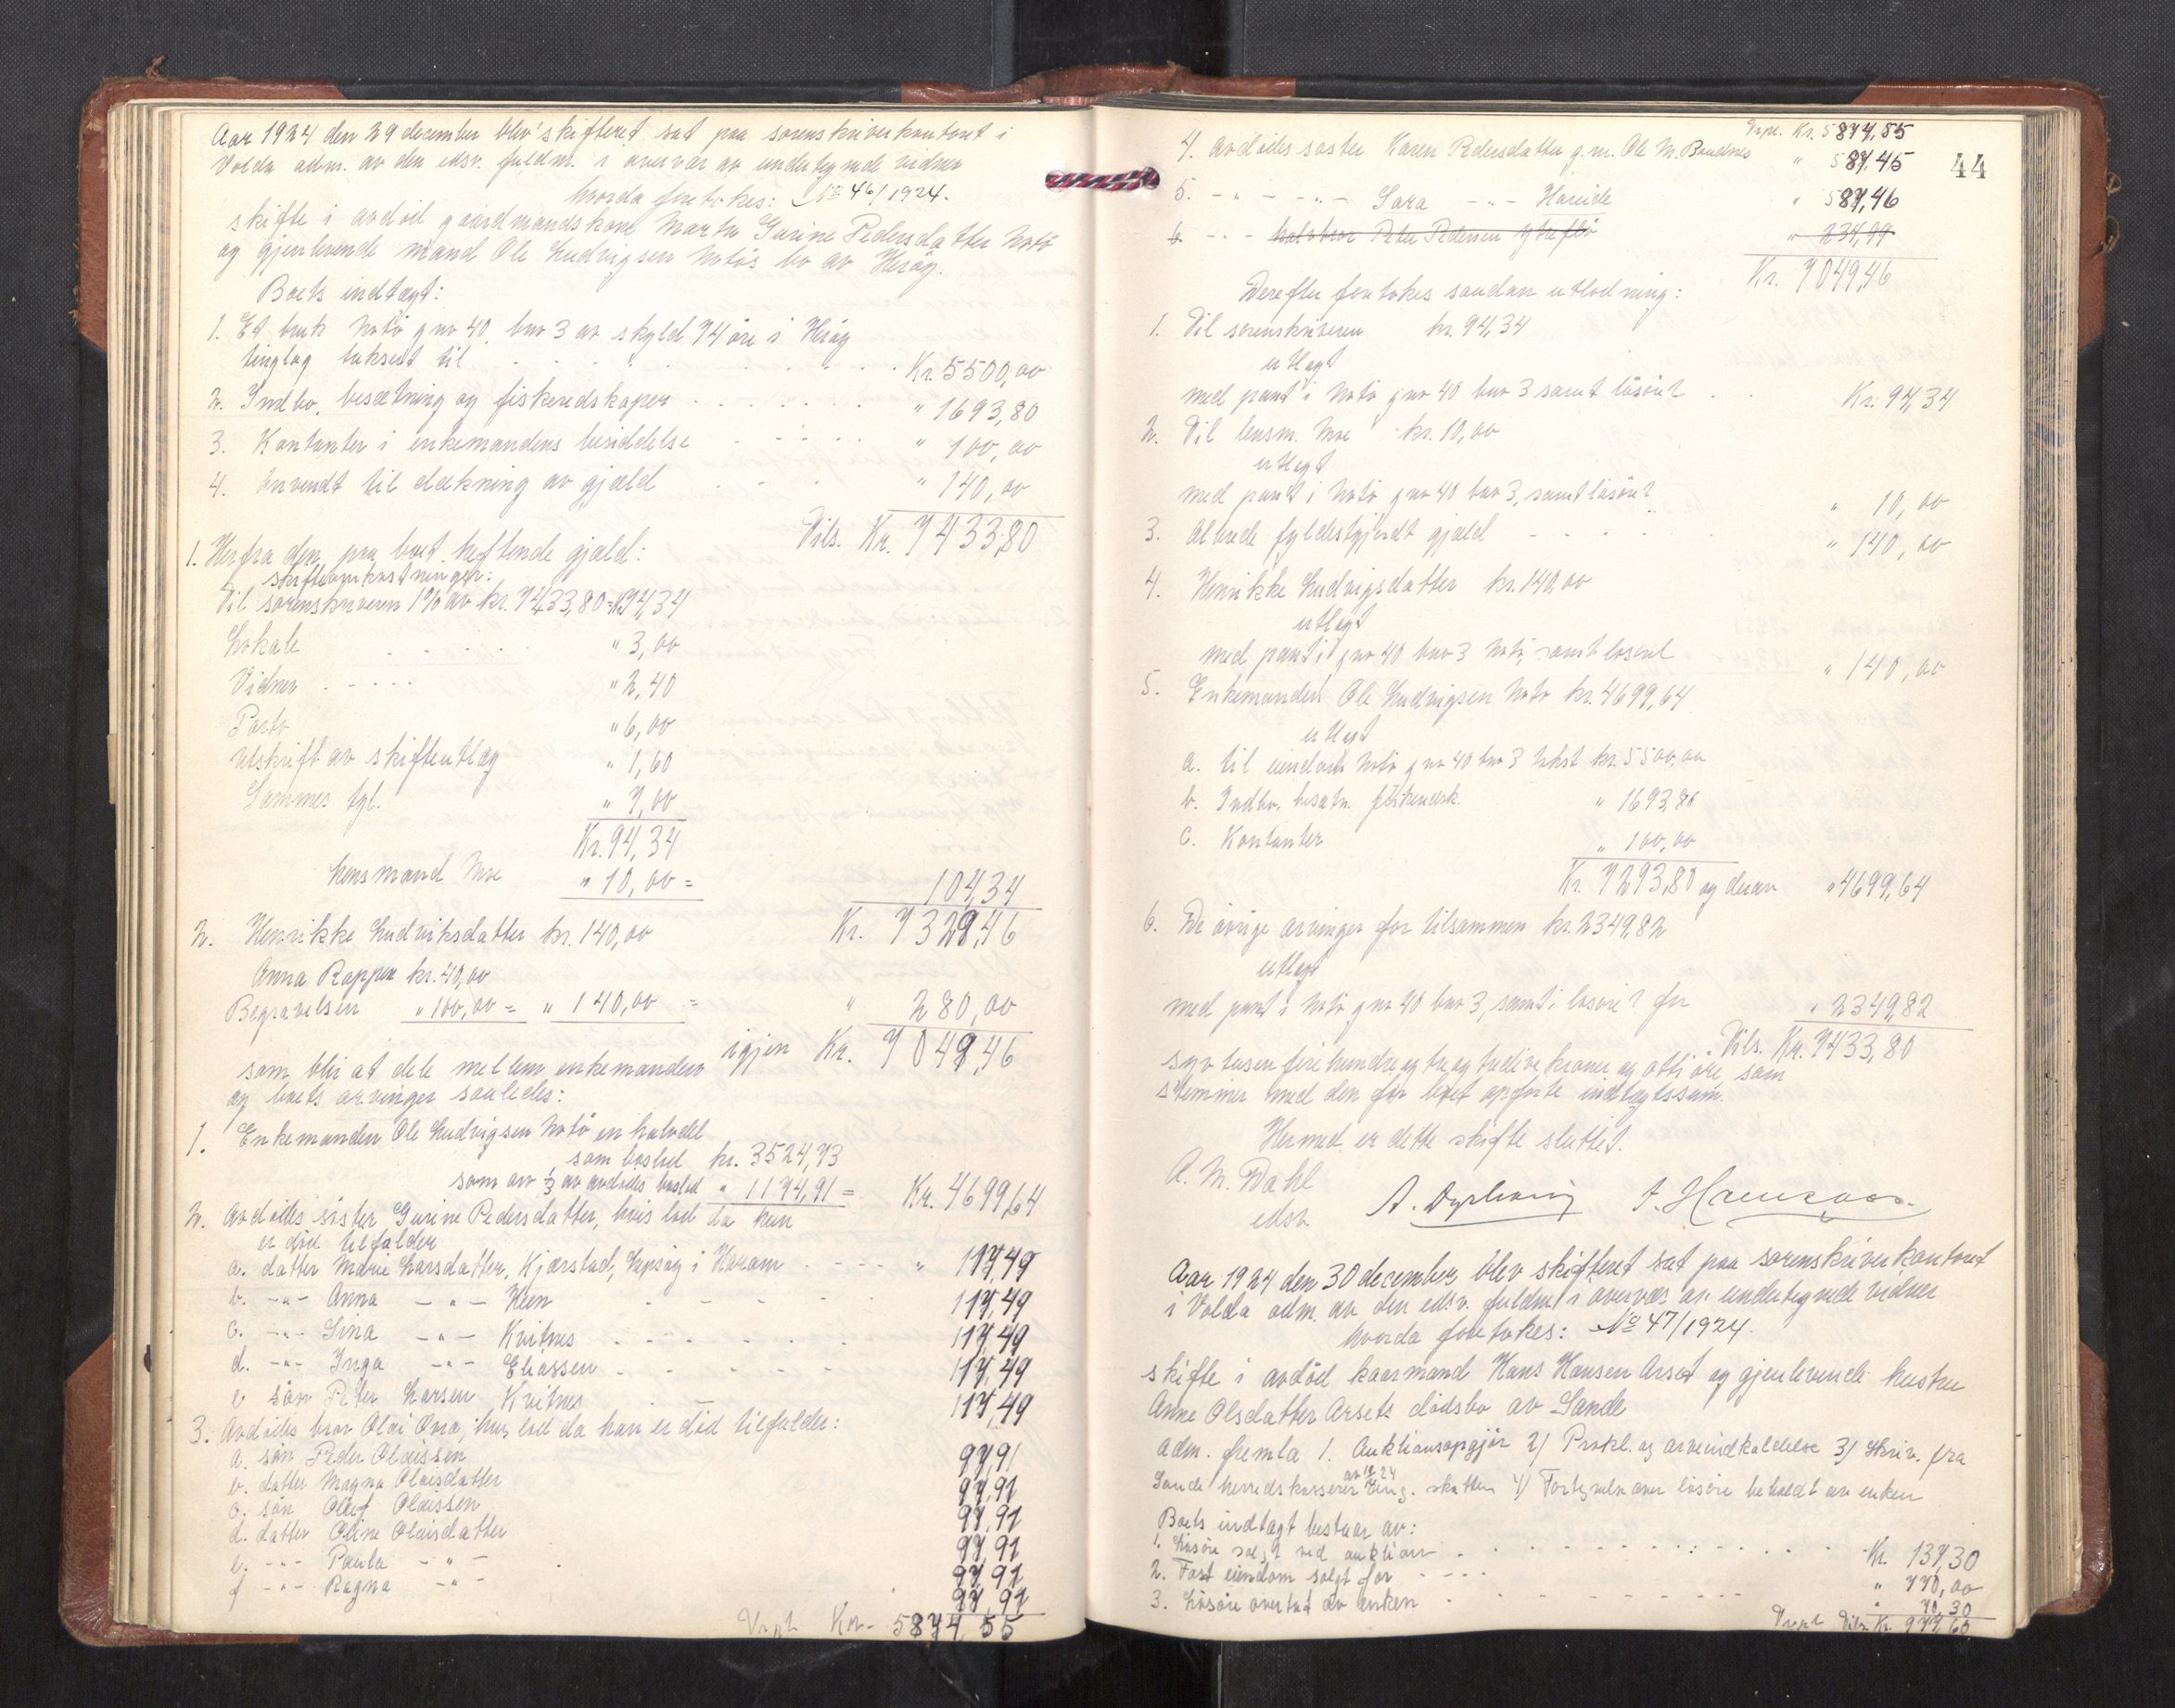 Aar 1924 den 29 december blev skifteret sat paa sorenskriverkontoret i
Volda adm. av den edsv. fuldm. i overvær av undertegnede vidner
hvorda foretokes: No 46/1924.
skifte i avdød gaardmandskone Marta Gurine Pedersdatter Notø
og gjenlevende mand Ole Ludvigsen Notøs bo av Herøy.
Boets indtægt:
1. Et bruk Notø gno 40, bno 3 av skyld 74 øre i Herøy
tinglag takseret til . . . Kr. 5500,00
2. Indbo, besætning og fiskeredskaper . . . " 1693,80
3. Kontanter i enkemandens besiddelse . . . " 100,00
4. Anvendt til dækning av gjæld . . . " 140,00
Tils. Kr. 7433,80
1. Herfra den paa boet heftende gjæld:
skifteomkostninger:
Til sorenskriveren 1% av kr. 7433,80 = Kr. 74,34
Lokale . . . " 3,00
Vidner . . . " 2,40
Porto " 6,00
Utskrift av skifteutlæg " 1,60
Sammes tgl. " 7,00
Kr. 94,34
Lensmand Moe " 10,00 = 104,34
Kr. 7329,46
2. Henrikke Ludviksdatter kr. 140,00
Anna Rappen kr. 40,00
Begravelsen " 100,00 = " 140,00 = " 280,00
igjen Kr. 7049,46
som blir at dele mellem enkemanden
og boets arvinger saaledes:
1. Enkemanden Ole Ludvigsen Notø en halvdel
som boslod kr. 3524,73
som arv 1/3 av avdødes boslod " 1174,91 = Kr. 4699,64
2. Avdødes søster Gurine Pedersdatter, hvis lod da hun
er død tilfalder
a. datter Marie Larsdatter, Kjærstad, Lepsøy i Haram . . . " 117,49
b. -"- Anna -"- Hen . . . 117,49
c. -"- Sina -"- Kvitnes . . . 117,49
d. -"- Inga -"- Eliassen . . . 117,49
e søn Peter Larsen Kvitnes . . . 117,49
3. Avdødes bror Olai Ona, hvis lod da han er død tilfalder:
a. søn Peder Olaissen 97,91
b. datter Magna Olaisdatter 97,91
c. søn Olaf Olaissen 97,91
d. datter Oline Olaisdatter 97,91
e. -"- Paula -"- 97,91
f -"- Ragna -"- 97,91
Trpt Kr. 5874,55
44
Trpt. Kr. 5874,55
4. Avdødes søster Karen Pedersdatter g.m. Ole M. Brudnes " 587,45
5. -"- -"- Sara -"- Hareide " 587,46
6. -"- halvbror Peter Pedersen Ytreflø " 234,99
Kr. 7049,46
Derefter foretokes saadan utlodning:
1. Til sorenskriveren kr. 94,34
utlagt
med pant i Notø gno 40 bno 3 samt løsøret . . Kr. 94,34
2. Til lensm. Moe kr. 10,00
utlagt
med pant i Notø gno 40 bno 3, samt løsøret " 10,00
3. Allerede fyldestgjordt gjæld . . . " 140,00
4. Henrikke Ludvigsdatter kr. 140,00
utlagt
med pant i gno 40 bno 3 Notø, samt løsøret " 140,00
5. Enkemanden Ole Ludvigsen Notø kr. 4699,64
utlagt
a. til eiendom Notø gno 40 bno 3 takst kr. 5500,00
b. Indbo, besætn. fiskeredsk. " 1693,80
c. Kontanter " 100,00
Kr. 7293,80 og derav " 4699,64
6. De øvrige arvinger for tilsammen kr. 2349,82
utlagt
med pant i Notø gno 40 bno 3, samt i løsøret for " 2349,82
Tils. Kr. 7433,80
syv tusen fire hundre og tre og tredive kroner og otti øre, som
stemmer med den for boet opførte indtægtssum.
Hermed er dette skifte sluttet.
A. M. Dahl
edsv.
Aar 1924 den 30 december blev skifteret sat paa sorenskriverkontoret
i Volda adm. av den edsv. fuldm. i overvær av undertegnede vidner
hvorda foretokes: No 47/1924.
skifte i avdød kaarmand Hans Hansen Arset og gjenlevende hustru
Anne Olsdatter Arsets dødsbo av Sande
Adm. fremla 1. Auktionsopgjør 2) Prokl. og arveindkaldelse 3) Skriv. fra
Sande herredskasserer ang. skatten av 19/12 24 4) Fortegnelse over løsøre beholdt av enken
Boets indtægt bestaar av:
1. Løsøre solgt ved auktion . . . Kr. 137,30
2. Fast eiendom solgt for . . . " 770,00
3. Løsøre overtat av enken . . . " 70,30
Trpt Tils. Kr. 977,60